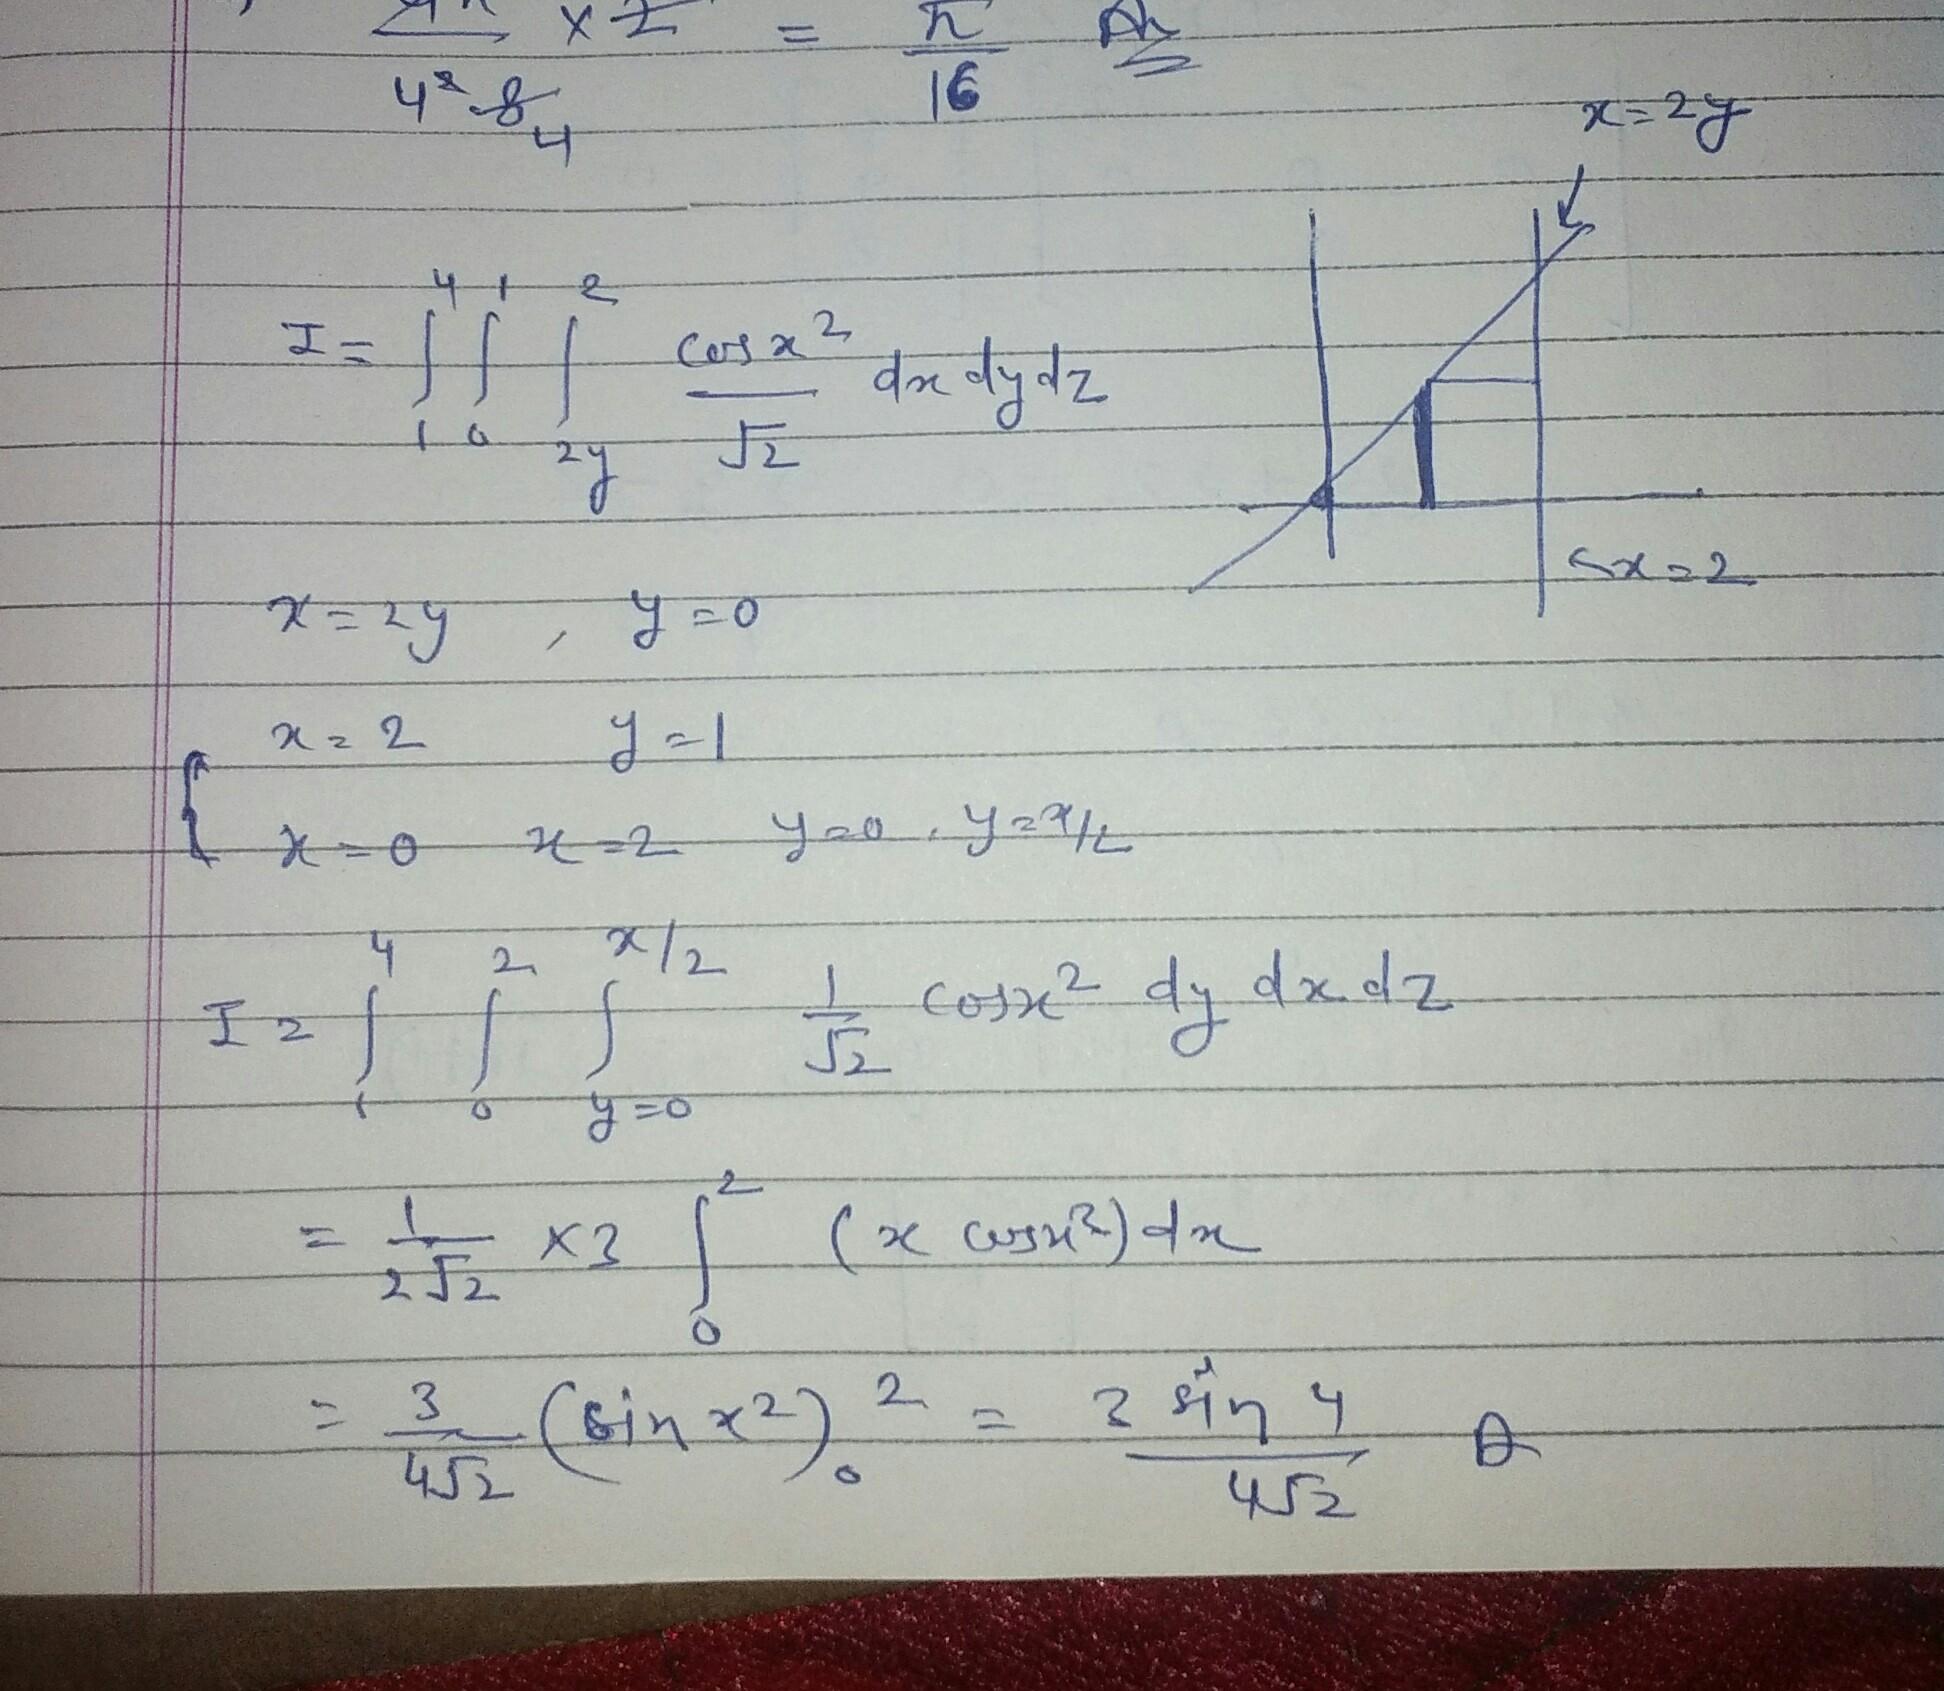 4² 8 4 × 2 = π/16 Ans
x=2y
I = ∫₁⁴ ∫₀¹ ∫_{2y}^{2} cos x²/√2 dx dy dz
x=2
x=2y , y=0
x=2 y=1
x=0 x=2 y=0, y=x/2
I = ∫₁⁴ ∫₀² ∫_{y=0}^{x/2} 1/√2 cosx² dy dx dz
= 1/2√2 ×3 ∫₀² (x cosx²) dx
= 3/4√2 (sin x²)₀² = 3 sin 4/4√2